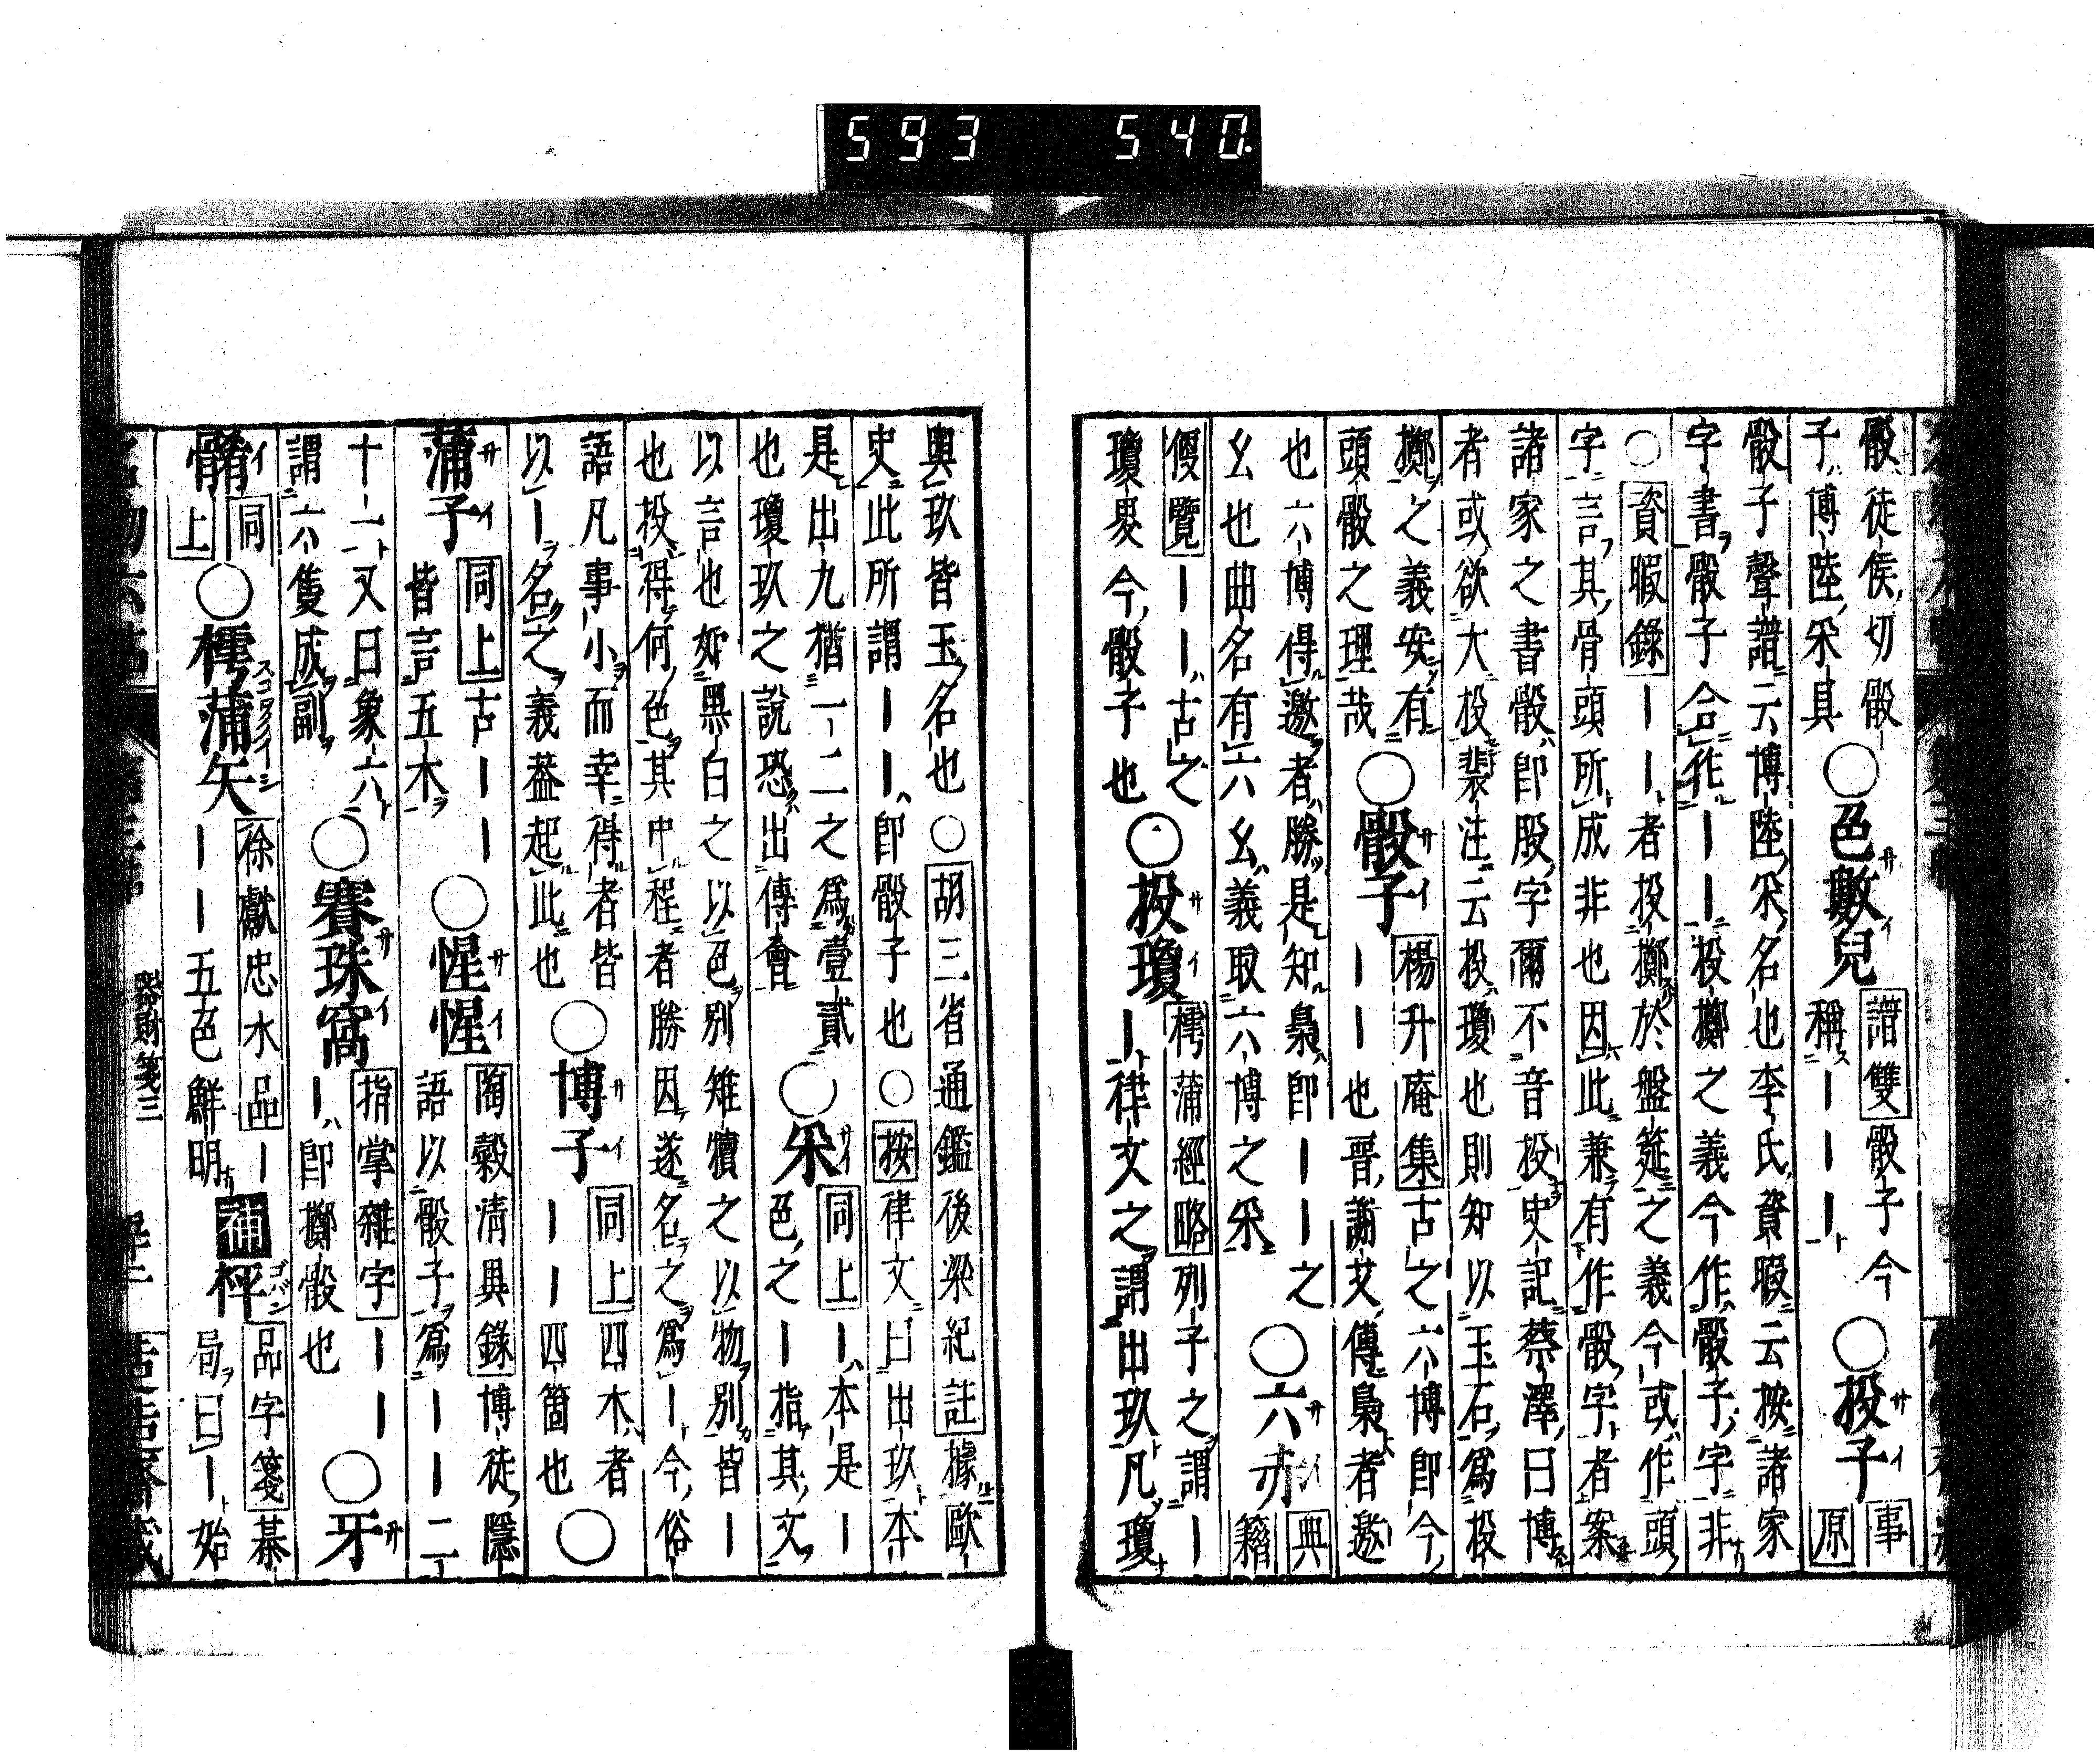 593 540.
骰徒侯切骰
子博陸采具
○色數兒
譜雙骰子今
稱｜｜｜
○投子
事
原
骰子聲譜云博陸采名也李氏資暇云按諸家
字書骰子合作｜｜投擲之義今作骰子字非
○資暇錄｜｜者投擲於盤筵之義今或作頭
字言其骨頭所成非也因此兼有作骰字者案
諸家之書骰即股字爾不音投史記蔡澤曰博
者或欲大投裴注云投瓊也則知以玉石爲投
擲之義安有
頭骰之理哉
○骰子
楊升庵集古之六博即今
｜｜也晉謝艾傳梟者邀
也六博得邀者勝是知梟即｜｜之
幺也曲名有六幺義取六博之采
○六赤
典
籍
便覽｜｜古之
瓊畟今骰子也
○投瓊
樗蒲經略列子之謂｜
｜律文之謂出玖凡瓊
與玖皆玉名也○胡三省通鑑後梁紀註據歐
史此所謂｜｜即骰子也○按律文曰出玖本
是出九猶一二之爲壹貳
也瓊玖之說恐出傳會
○采
同上｜本是｜
色之｜指其文
以言也如黑白之以色別雉犢之以物別皆｜
也投得何色其中程者勝因遂名之爲｜今俗
語凡事小而幸得者皆
以｜名之義蓋起此也
○博子
同上四木者
｜｜四箇也
○
蒲子
同上古｜｜
皆言五木
○惺惺
陶穀清異錄博徒隱
語以骰子爲｜｜二
十一又曰象六
謂六隻成副
○賽珠窩
指掌雜字｜｜
｜即擲骰也
○牙
同
上
○樗蒲矢
徐獻忠水品｜
｜｜五色鮮明
補枰
品字箋棊
局曰｜始
器財箋三